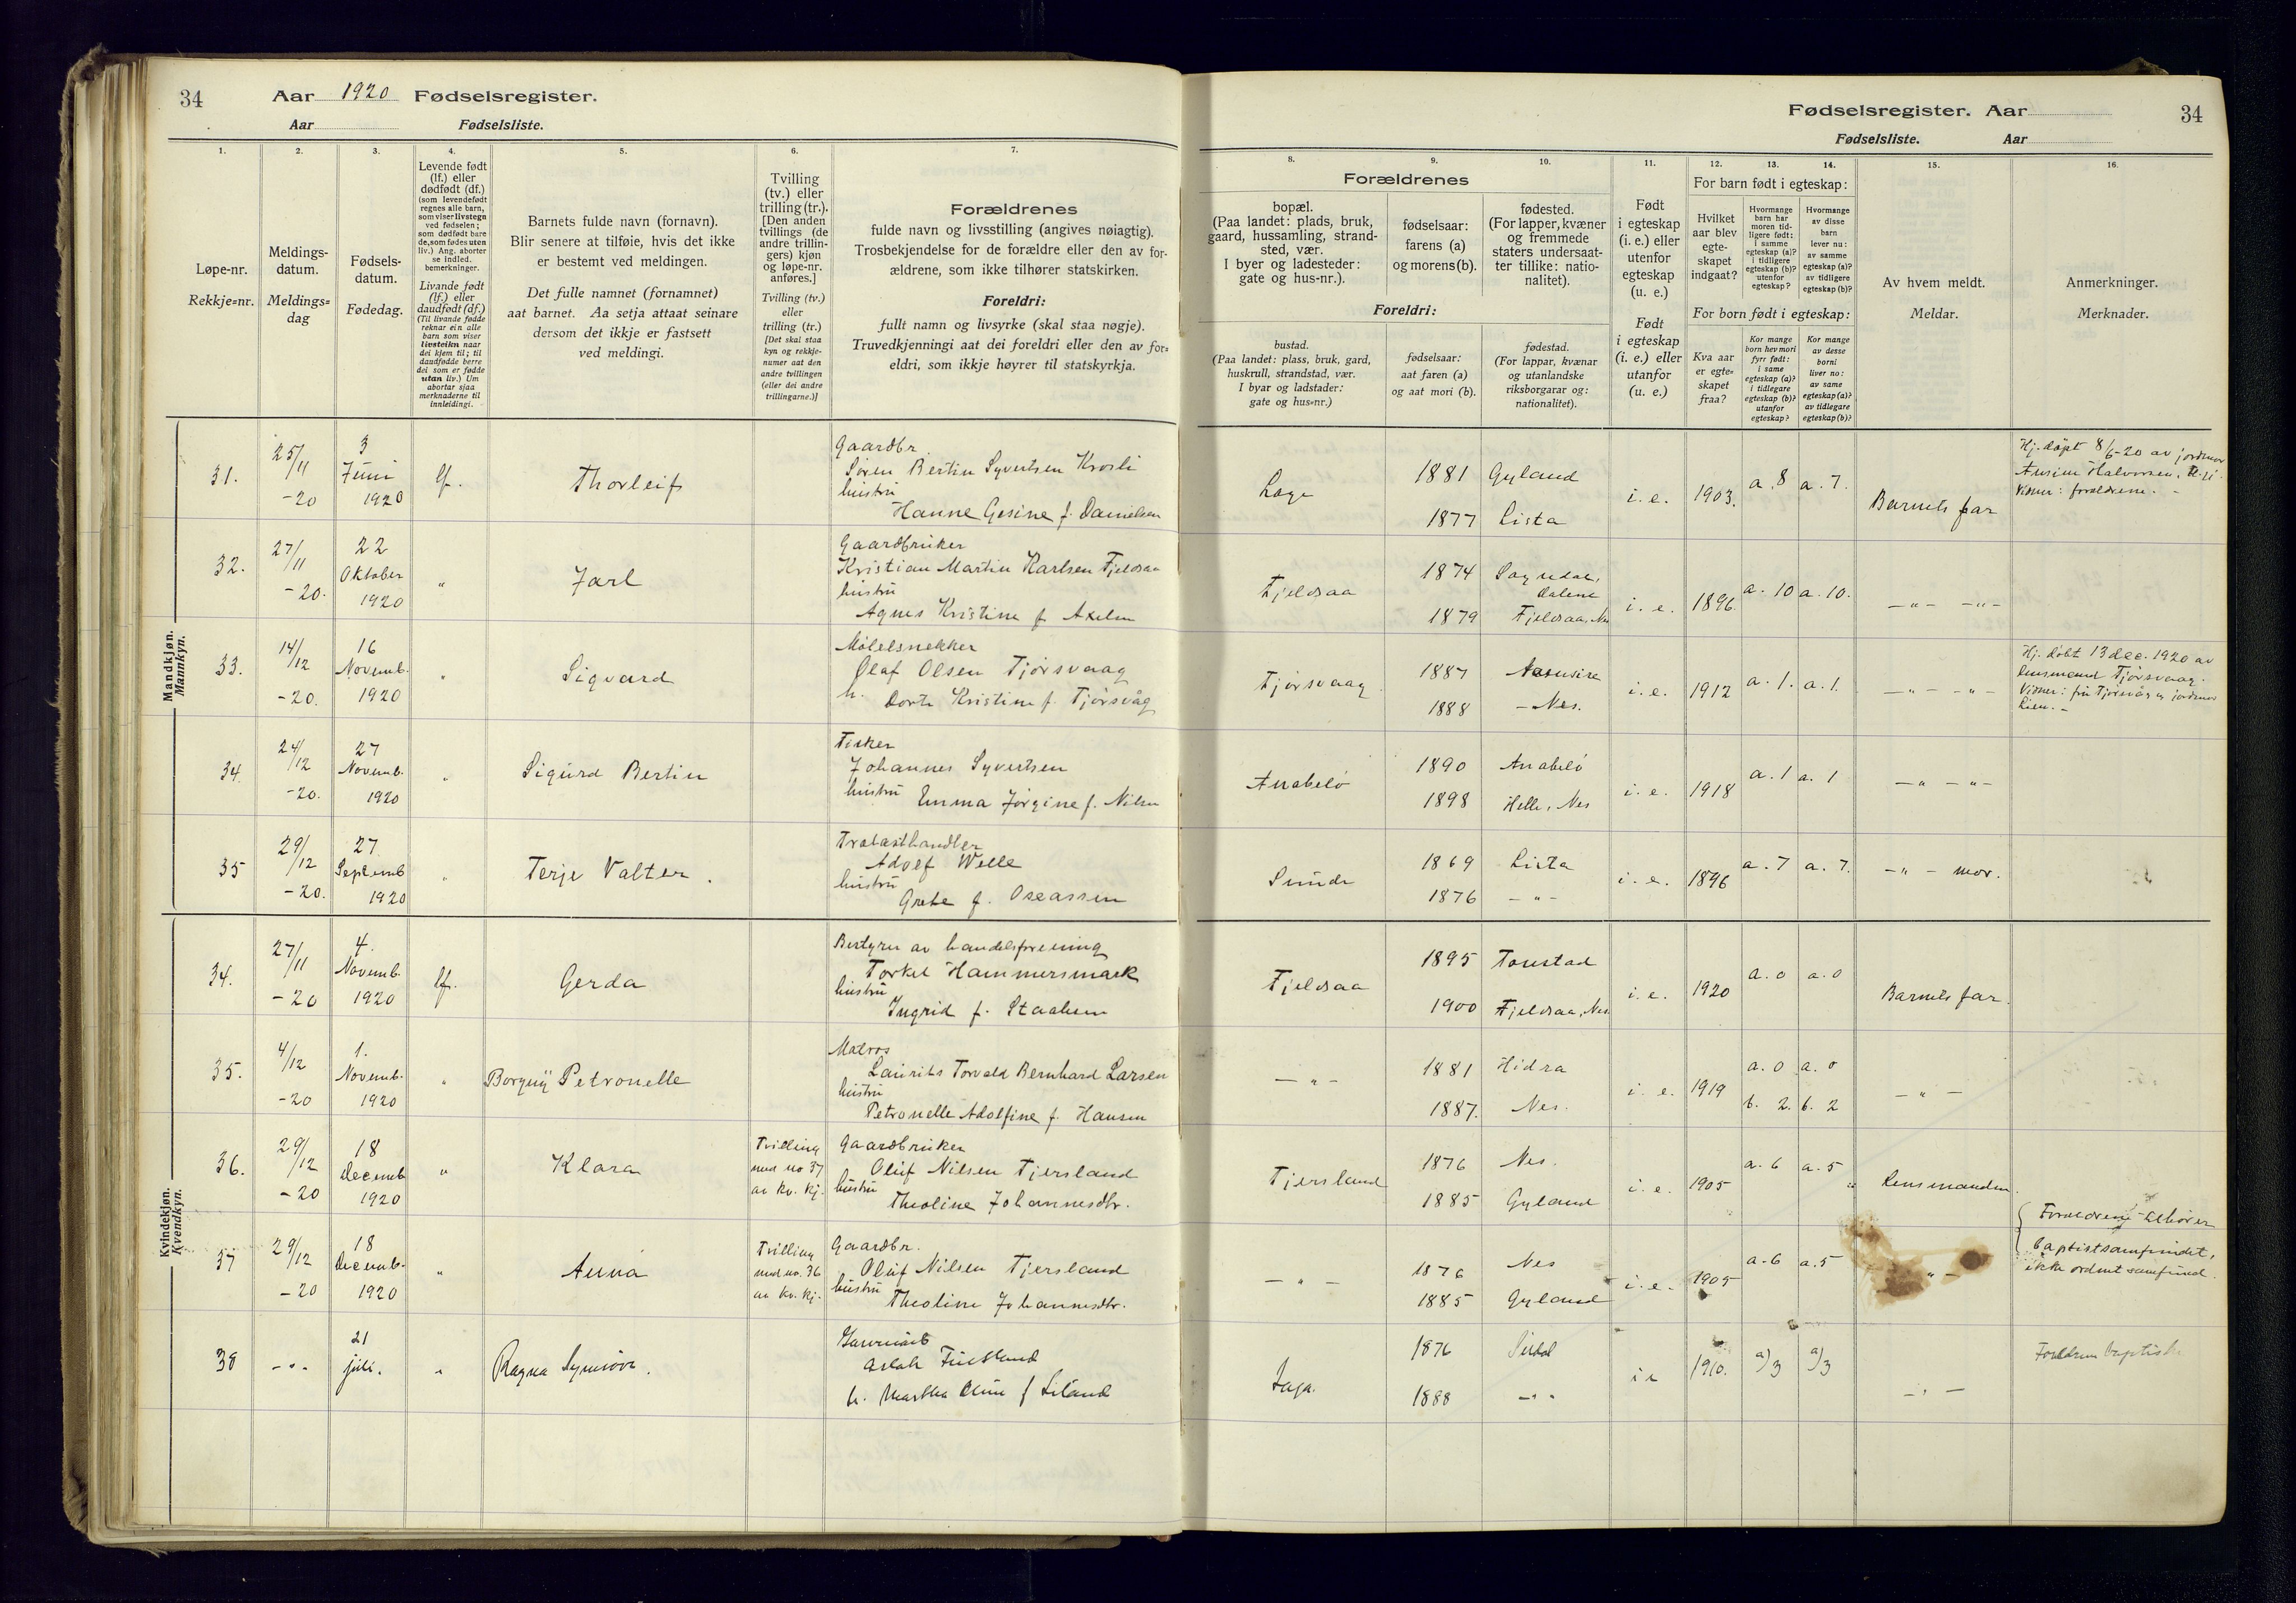 34
Aar 1920 Fødselsregister.
Aar Fødselsliste.
1.
2.
3.
4.
5.
6.
7.
Løpe-nr.
Rekkje-nr.
Meldings-
datum.
Meldings-
dag
Fødsels-
datum.
Fødedag.
Levende født
(lf.) eller
dødfødt (df.)
(som levendefødt
regnes alle barn,
som viser livstegn
ved fødselen;
som dødfødt bare
de, som fødes uten
liv.) Ang. aborter
se indled.
bemerkninger.
Livande født
(lf.) eller
daudfødt (df.)
(Til livande fødde
reknar ein alle
barn som viser
livsteikn naar
dei kjem til; til
daudfødde berre
dei som er fødde
utan liv.) Um
abortar sjaa
merknaderne til
innleidingi.
Barnets fulde navn (fornavn).
Blir senere at tilføie, hvis det ikke
er bestemt ved meldingen.
Det fulle namnet (fornamnet)
aat barnet. Aa setja attaat seinare
dersom det ikkje er fastsett
ved meldingi.
Tvilling
(tv.) eller
trilling (tr.).
[Den anden
tvillings (de
andre trillin-
gers) kjøn
og løpe-nr.
anføres.]
Tvilling (tv.)
eller
trilling (tr.)
[Det skal staa
kyn og rekkje-
numer aat den
andre tvillingen
(eller dei andre
trillingarne.)]
Forældrenes
fulde navn og livsstilling (angives nøiagtig).
Trosbekjendelse for de forældre eller den av for-
ældrene, som ikke tilhører statskirken.
Foreldri:
fullt namn og livsyrke (skal staa nøgje).
Truvedkjenningi aat dei foreldri eller den av for-
eldri, som ikkje høyrer til statskyrkja.
Mandkjøn.
Mannkyn.
31.
25/11
-20
3
Juni
1920
lf.
Thorleif
Gaardbr.
Søren Bertin Syvertsen Krosli
hustru
Hanne Gesine f. Danielsen
32.
27/11
-20.
22
Oktober
1920
"
Jarl
Gaardbruker
Kristian Martin Karlsen Fjeldsaa
hustru
Agnes Kristine f. Axelsen
33.
14/12
-20.
16
Novemb.
1920
"
Sigvard
Møbelsnekker
Olaf Olsen Tjørsvaag
h.
Dorte Kristine f. Tjørsvåg
34.
24/12
-20.
27
Novemb.
1920
"
Sigurd Bertin
Fisker
Johannes Syvertsen
hustru
Emma Jørgine f. Nilsen
35
29/12
-20.
27.
Septemb
1920
"
Terje Valter.
Trælasthandler
Adolf Welle
hustru
Grete f. Oseassen
Kvindekjøn.
Kvendkyn.
34.
27/11
-20
4.
Novemb.
1920
lf.
Gerda
Bestyrer av handelsforening
Torkel Hammersmark
hustru
Ingrid f. Staalesen
35.
4/12
-20
1.
Novemb.
1920
"
Borgny Petronelle
Matros
Laurits Torvald Bernhard Larsen
hustru
Petronelle Adolfine f. Hansen
36.
29/12
-20
18
Decemb
1920
"
Klara
Tvilling
med no 37
av kv. kj.
Gaardbruker
Oluf Nilsen Tjersland
hustru
Theoline Johannesdtr.
37
29/12
-20
18
Decemb.
1920
"
Anna
Tvilling
med no. 36
av kv. kj.
Gaardbr.
Oluf Nilsen Tjersland
hustru
Theoline Johannesdtr.
38
- " -
21
juli.
"
Ragna Synnöve.
h. Martha Eline f Liland
Fødselsregister. Aar
34
Fødselsliste. Aar
8.
9.
10.
11.
12.
13.
14.
15.
16.
Forældrenes
bopæl.
(Paa landet: plads, bruk,
gaard, hussamling, strand-
sted, vær.
I byer og ladesteder:
gate og hus-nr.).
fødselsaar:
farens (a)
og morens (b).
fødested.
(For lapper, kvæner
og fremmede
staters undersaat-
ter tillike: natio-
nalitet).
Foreldri:
bustad.
(Paa landet: plass, bruk, gard,
huskrull, strandstad, vær.
I byar og ladstader:
gate og hus-nr.)
fødselsaar:
aat faren (a)
og aat mori (b).
fødestad.
(For lappar, kvænar
og utanlandske
riksborgarar og:
nationalitet).
Født
i egteskap
(i. e.) eller
utenfor
egteskap
(u. e.)
Født
i egteskap
(i. e.) eller
utanfor
(u. e.)
For barn født i egteskap:
Hvilket
aar blev
egte-
skapet
indgaat?
Hvormange
barn har
moren tid-
ligere født:
i samme
egteskap (a)?
i tidligere
egteskap (b)?
utenfor
egteskap?
Hvormange
av disse
barn
lever nu:
av samme
egteskap (a)?
av tidligere
egteskap (b)?
For born født i egteskap:
Kva aar
er egte-
skapet
fraa?
Kor mange
born hev mori
fyrr født:
i same
egteskap (a)?
i tidlegare
egteskap (b)?
utanfor
egteskap?
Kor mange
av desse
borni
liver no:
av same
egteskap (a)?
av tidlegare
egteskap (b)?
Av hvem meldt.
Meldar.
Anmerkninger.
Merknader.
Loga
1881
1877
Gyland
Lista
i. e.
1903.
a. 8
a. 7.
Barnets far
Hj. døpt 8/6-20 av jordmor
Ansine Halvorsen,
Vidner: forældrene. -
Fjeldsaa
1874
1879
Sogndal,
Dalene
Fjeldsaa, Nes
i. e.
1896.
a. 10
a. 10.
- " - - " -
Tjørsvaag
1887
1888
- Nes.
i. e.
1912
a. 1.
a. 1.
- " - - " -
Hj. døbt 13 dec. 1920 av
lensmand Tjørsvaag.
Vidner: fru Tjørsvåg og jordmor
Lien. -
Anabelö
1890
1898
Anabelö
Helle, Nes
i. e.
1918
a. 1
a. 1
- " - - " -
Sunde
1869
1876
Lista
- " -
i. e.
1896
a. 7
a. 7.
- " - mor.
Fjeldsaa
1895
1900
Tonstad
Fjeldsaa, Nes
i. e.
1920
a. 0
a. 0
Barnets far.
- " -
1881
1887.
Hidra
Nes.
i. e.
1919
a. 0
b. 2.
a. 0
b. 2
- " -
Tjersland
1876
1885
Nes.
Gyland
i. e.
1905
a. 6
a. 5
Lensmanden.
- " -
1876
1885
Nes
Gyland
i. e.
1905
a. 6
a. 5
"
Forældrene tilhører
baptistsamfundet,
ikke ordnet samfund.
Loga.
1876
1888
- " -
i e
1910.
a) 3
a) 3
- " -